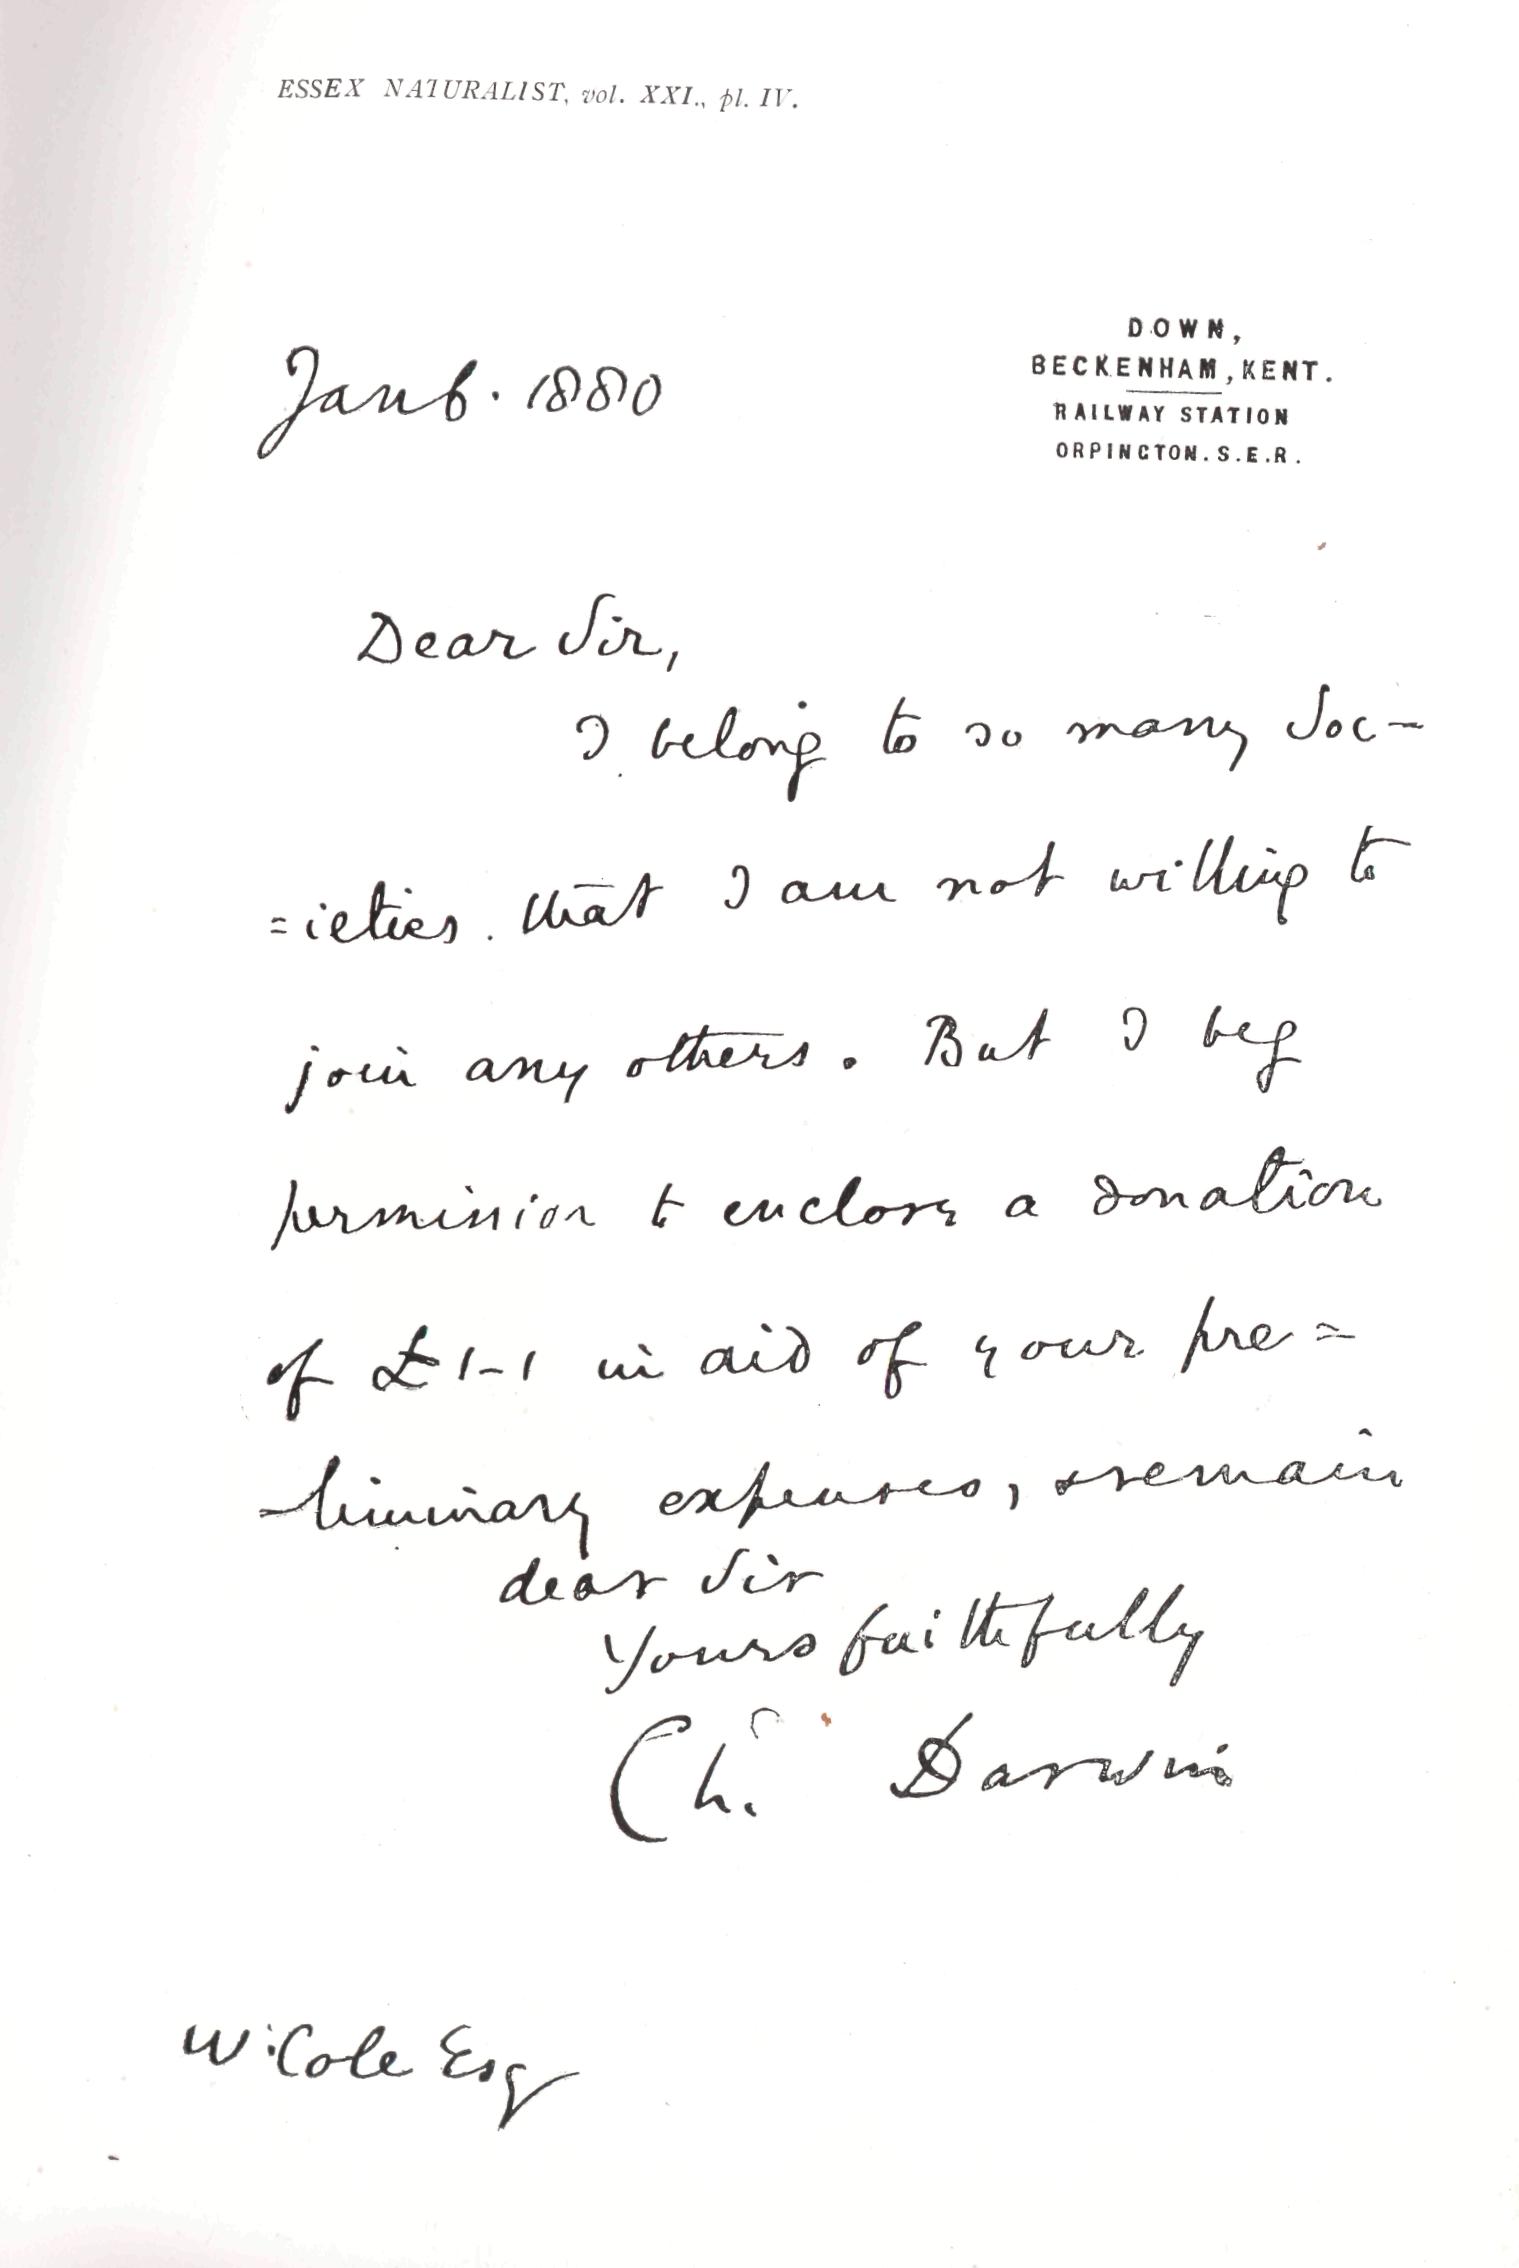 ESSEX NATURALIST, vol. XXI., pl. IV.
DOWN,
BECKENHAM, KENT.
RAILWAY STATION
ORPINGTON. S.E.R.
Jan 6. 1880
Dear Sir,
I belong to so many Soc-
=ieties. that I am not willing to
join any others. But I beg
permission to enclose a donation
of £1-1 in aid of your pre=
-liminary expenses, & remain
dear Sir
Yours faithfully
Ch. Darwin
W. Cole Esq